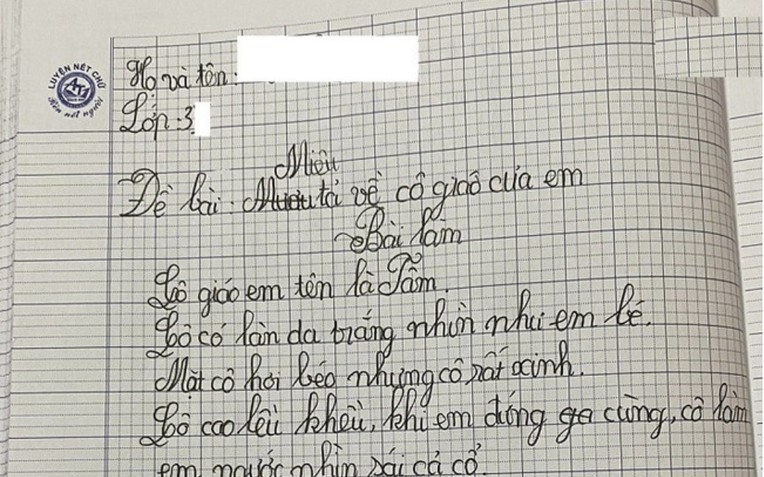 LUYỆN NÉT CHỮ
Rèn nết người
Họ và tên:
Lớp: 3
Miêu
Đề bài: Mưưu tả về cô giáo của em
Bài làm
Cô giáo em tên là Tâm.
Cô có làn da trắng nhìn như em bé.
Mặt cô hơi béo nhưng cô rất xinh.
Cô cao lêu khêu, khi em đứng gần cùng, cô làm
em ngước nhìn sái cả cổ.